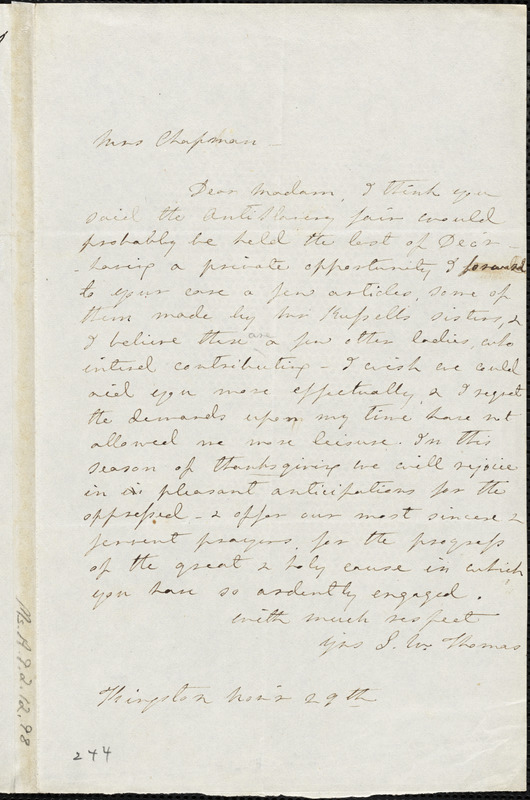 Mrs Chapman -
Dear Madam, I think you
said the Antislavery fair would
probably be held the last of Decr -
- having a private opportunity I forward
to your care a few articles, some of
them made by Mr Russells sisters, &
I believe there are a few other ladies, who
intend contributing - I wish we could
aid you more effectually, & I regret
the demands upon my time have not
allowed me more leisure. In this
season of thanksgiving we will rejoice
in pleasant anticipations for the
oppressed - & offer our most sincere &
fervent prayers, for the progress
of the great & holy cause in which
you have so ardently engaged.
with much respect
Yrs S. W. Thomas
Kingston Nov'r 29th
244
M.A.9.2.12.98